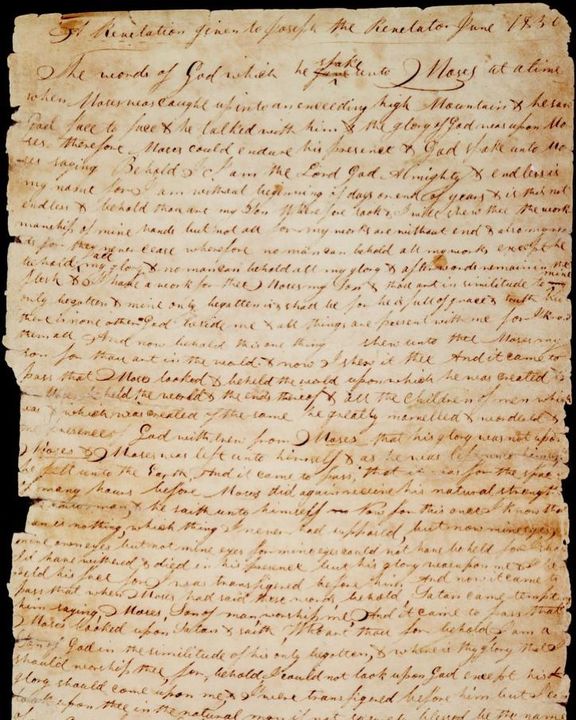 A Revelation given to Joseph the Revelator June 1830
The words of God which he spake gave unto Moses at a time
when Moses was caught up into an exceeding high Mountain & he saw
God face to face & he talked with him & the glory of God was upon Mo
ses therefore Moses could endure his presence & God spake unto Mo
ses saying Behold I am the Lord God Almighty & endless is
my name for I am without beginning of days or end of years & is this not
endless & behold thou art my Son Wherefore look & I will shew thee the work
manship of mine hands but not all for my works are without end & also my wor
ds for they never cease wherefore no man can behold all my works except he
behold all my glory & no man can behold all my glory & afterwards remain in the
flesh & I have a work for thee Moses my Son & thou art in similitude to mine
only begotten & mine only begotten is & shall be for he is full of grace & truth but
there is none other God beside me & all things are present with me for I know
them all And now behold this one thing I shew unto thee Moses my
son for thou art in the world & now I shew it thee And it came to
pass that Moses looked & beheld the world upon which he was created &
Moses beheld the world & the ends thereof & all the Children of men which
was & which was created of the same he greatly marvelled & wondered &
the presence of God withdrew from Moses that his glory was not upon
Moses & Moses was left unto himself & as he was left unto himself
he fell unto the Earth And it came to pass that it was for the space
of many hours before Moses did again receive his natural strength
like unto man & he saith unto himself Now for this once I know that
man is nothing which thing I never had supposed but now mine eyes
mine own eyes but not mine eyes for mine eyes could not have beheld for I should
have withered & died in his presence but his glory was upon me & I be
held his face for I was transfigured before him And now it came to
pass that when Moses had said these words behold Satan came tempting
him saying Moses Son of man worship me And it came to pass that
Moses looked upon Satan & saith Who art thou for behold I am a
Son of God in the similitude of his only begotten & where is thy glory that I
should worship thee for behold I could not look upon God except his
glory should come upon me & I were transfigured before him but I can
look upon thee in the natural man